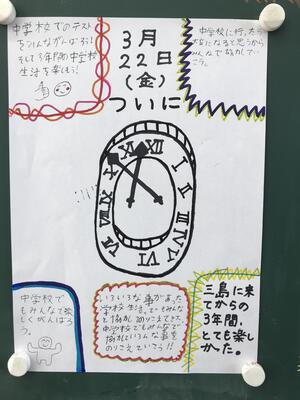 中学校でのテスト
をみんながんばろう!
そして3年間の中学校
生活を楽しもう!
3月
22日
(金)
ついに
中学校に行ったら
になると思うから
みんなで協力してい
こう。
XII
I
II
III
IV
V
VI
VII
VIII
X
XI
中学校で
もみんなで楽
しくがんばろ
う。
いろいろな事があった
学校生活。でもみんな
と協力しのりこえてきた
中学校でもみんなで
協力していろんな事を
のりこえていこう!!
三島に来
てからの
3年間、
とても楽し
かった。